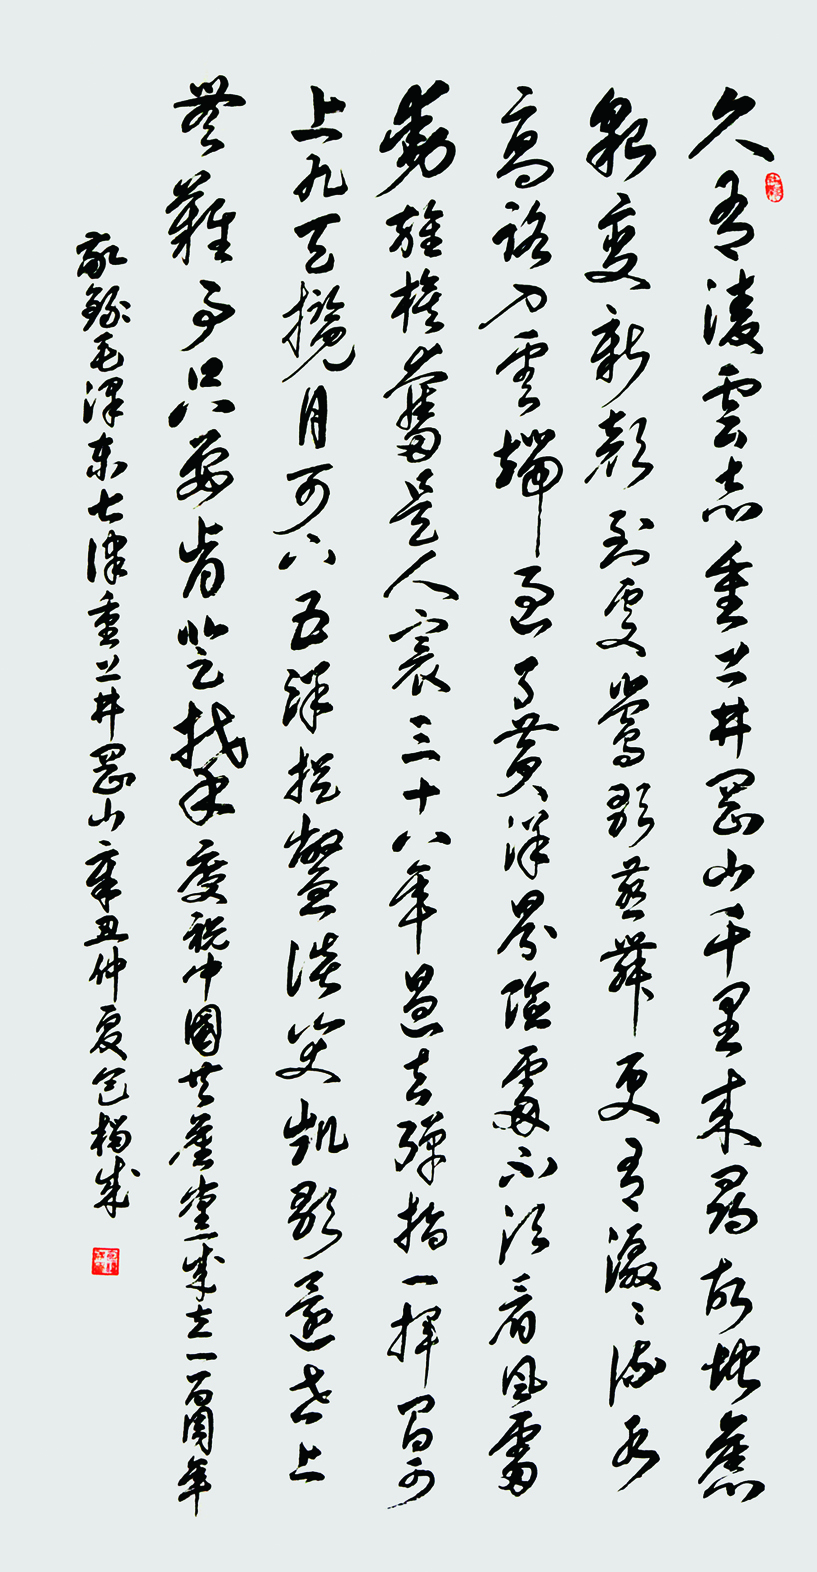 久有淩雲志重上井岡山千里來尋故地舊
貌變新顏到處鶯歌燕舞更有潺潺流水
高路入雲端過了黃洋界險處不須看風雷
動旌旗奮是人寰三十八年過去彈指一揮間可
上九天攬月可下五洋捉鱉談笑凱歌還世上
無難事只要肯登攀慶祝中國共產黨成立一百周年
敬錄毛澤東七律重上井岡山辛丑仲夏包成